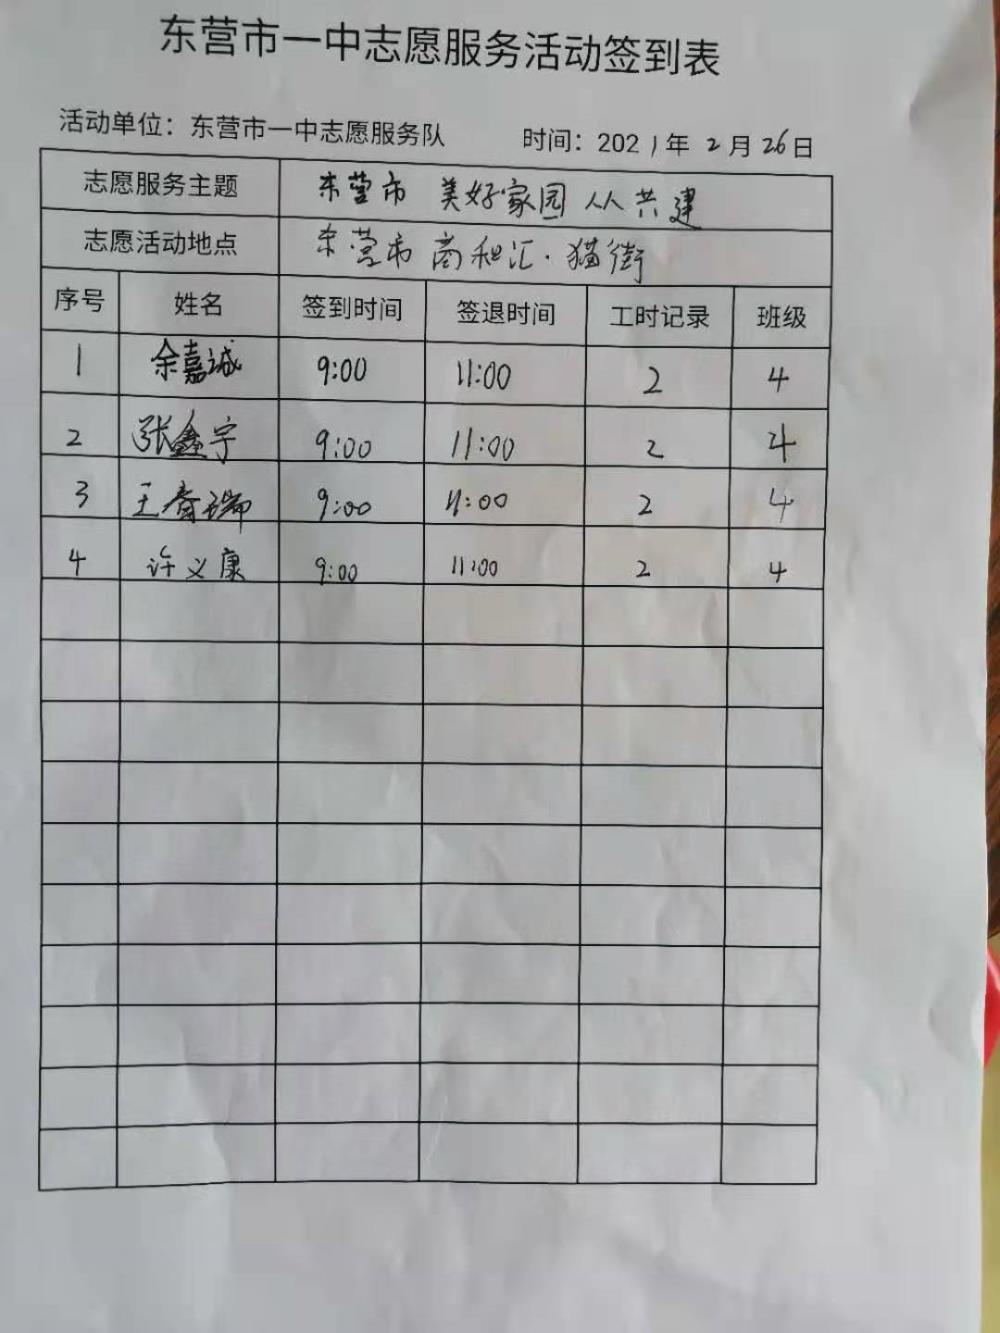 东营市一中志愿服务活动签到表
活动单位：东营市一中志愿服务队 时间：2021年2月26日
志愿服务主题 东营市 美好家园 从 共 建
志愿活动地点 东营市 商和汇·猫街
序号 姓名 签到时间 签退时间 工时记录 班级
1 余嘉诚 9:00 11:00 2 4
2 张鑫宇 9:00 11:00 2 4
3 王 瑞 9:00 11:00 2 4
4 许义康 9:00 11:00 2 4